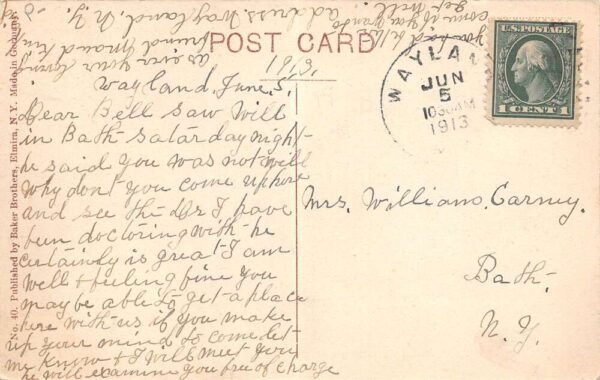 POST CARD
WAYLAN
JUN
5
1030AM
1913
U.S. POSTAGE
1 CENT 1
No. 40. Published by Baker Brothers, Elmira, N. Y. Made in Germany.
1913.
Wayland, June, 5,
Dear Bell saw Will
in Bath saturday night-
he said you was not will
why don't you come up here
and see the Dr I have
been doctoring with- he
certainly is great- I am
well & feeling fine you
may be able to get a place
here with us if you make
up your mind to come let
me know & I will meet you
he will examine you free of charge
as ever your loving
friend
address. Wayland, N. Y.
Mrs. Williams. Carney.
Bath-
N. Y.